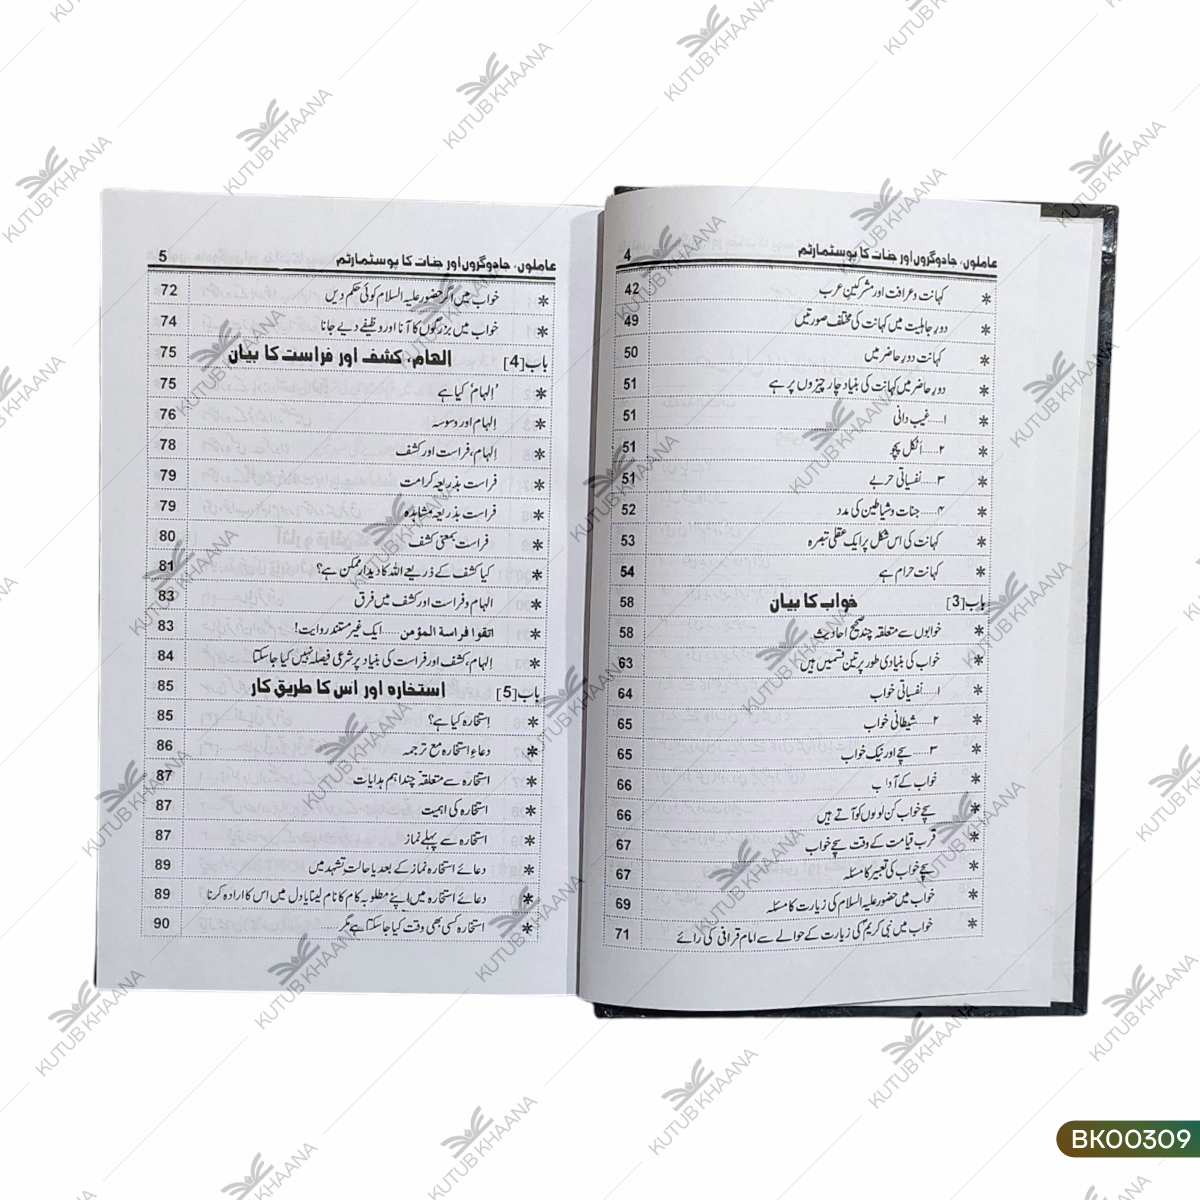 عاملوں، جادوگروں اور جنات کا پوسٹمارٹم 4
* کہانت وعرافت اور مشرکینِ عرب 42
* دورِ جاہلیت میں کہانت کی مختلف صورتیں 49
* کہانت دورِ حاضر میں 50
* دورِ حاضر میں کہانت کی بنیاد چار چیزوں پر ہے 51
* ۱.....غیب دانی 51
* ۲.....اٹکل پچو 51
* ۳.....نفسیاتی حربے 51
* ۴.....جنات وشیاطین کی مدد 52
* کہانت کی اس شکل پر ایک عقلی تبصرہ 53
* کہانت حرام ہے 54
باب[3] خواب کا بیان 58
* خوابوں سے متعلقہ چند صحیح احادیث 58
* خواب کی بنیادی طور پر تین قسمیں ہیں 63
* ۱.....نفسیاتی خواب 64
* ۲.....شیطانی خواب 65
* ۳.....سچے اور نیک خواب 65
* خواب کے آداب 66
* سچے خواب کن لوگوں کو آتے ہیں 66
* قربِ قیامت کے وقت سچے خواب 67
* سچے خواب کی تعبیر کا مسئلہ 67
* خواب میں حضور علیہ السلام کی زیارت کا مسئلہ 69
* خواب میں نبی کریم کی زیارت کے حوالے سے امام قرافی کی رائے 71
عاملوں، جادوگروں اور جنات کا پوسٹمارٹم 5
* خواب میں اگر حضور علیہ السلام کوئی حکم دیں 72
* خواب میں بزرگوں کا آنا اور وظیفے دیے جانا 74
باب[4] الہام، کشف اور فراست کا بیان 75
* ’اِلہام‘ کیا ہے 75
* اِلہام اور وسوسہ 76
* اِلہام، فراست اور کشف 78
* فراست بذریعہ کرامت 79
* فراست بذریعہ مشاہدہ 79
* فراست بمعنی کشف 80
* کیا کشف کے ذریعے اللہ کا دیدار ممکن ہے؟ 81
* الہام وفراست اور کشف میں فرق 83
* اتقوا فراسة المؤمن .....ایک غیر مستند روایت! 83
* اِلہام، کشف اور فراست کی بنیاد پر شرعی فیصلہ نہیں کیا جاسکتا 84
باب[5] استخارہ اور اس کا طریق کار 85
* اِستخارہ کیا ہے؟ 85
* دعاءِ استخارہ مع ترجمہ 86
* استخارہ سے متعلقہ چند اہم ہدایات 87
* استخارہ کی اہمیت 87
* استخارہ سے پہلے نماز 87
* دعائے استخارہ نماز کے بعد یا حالتِ تشہد میں 89
* دعائے استخارہ میں اپنے مطلوبہ کام کا نام لینا یا دل میں اس کا ارادہ کرنا 89
* استخارہ کسی بھی وقت کیا جاسکتا ہے مگر..... 90
KUTUB KHAANA
BK00309